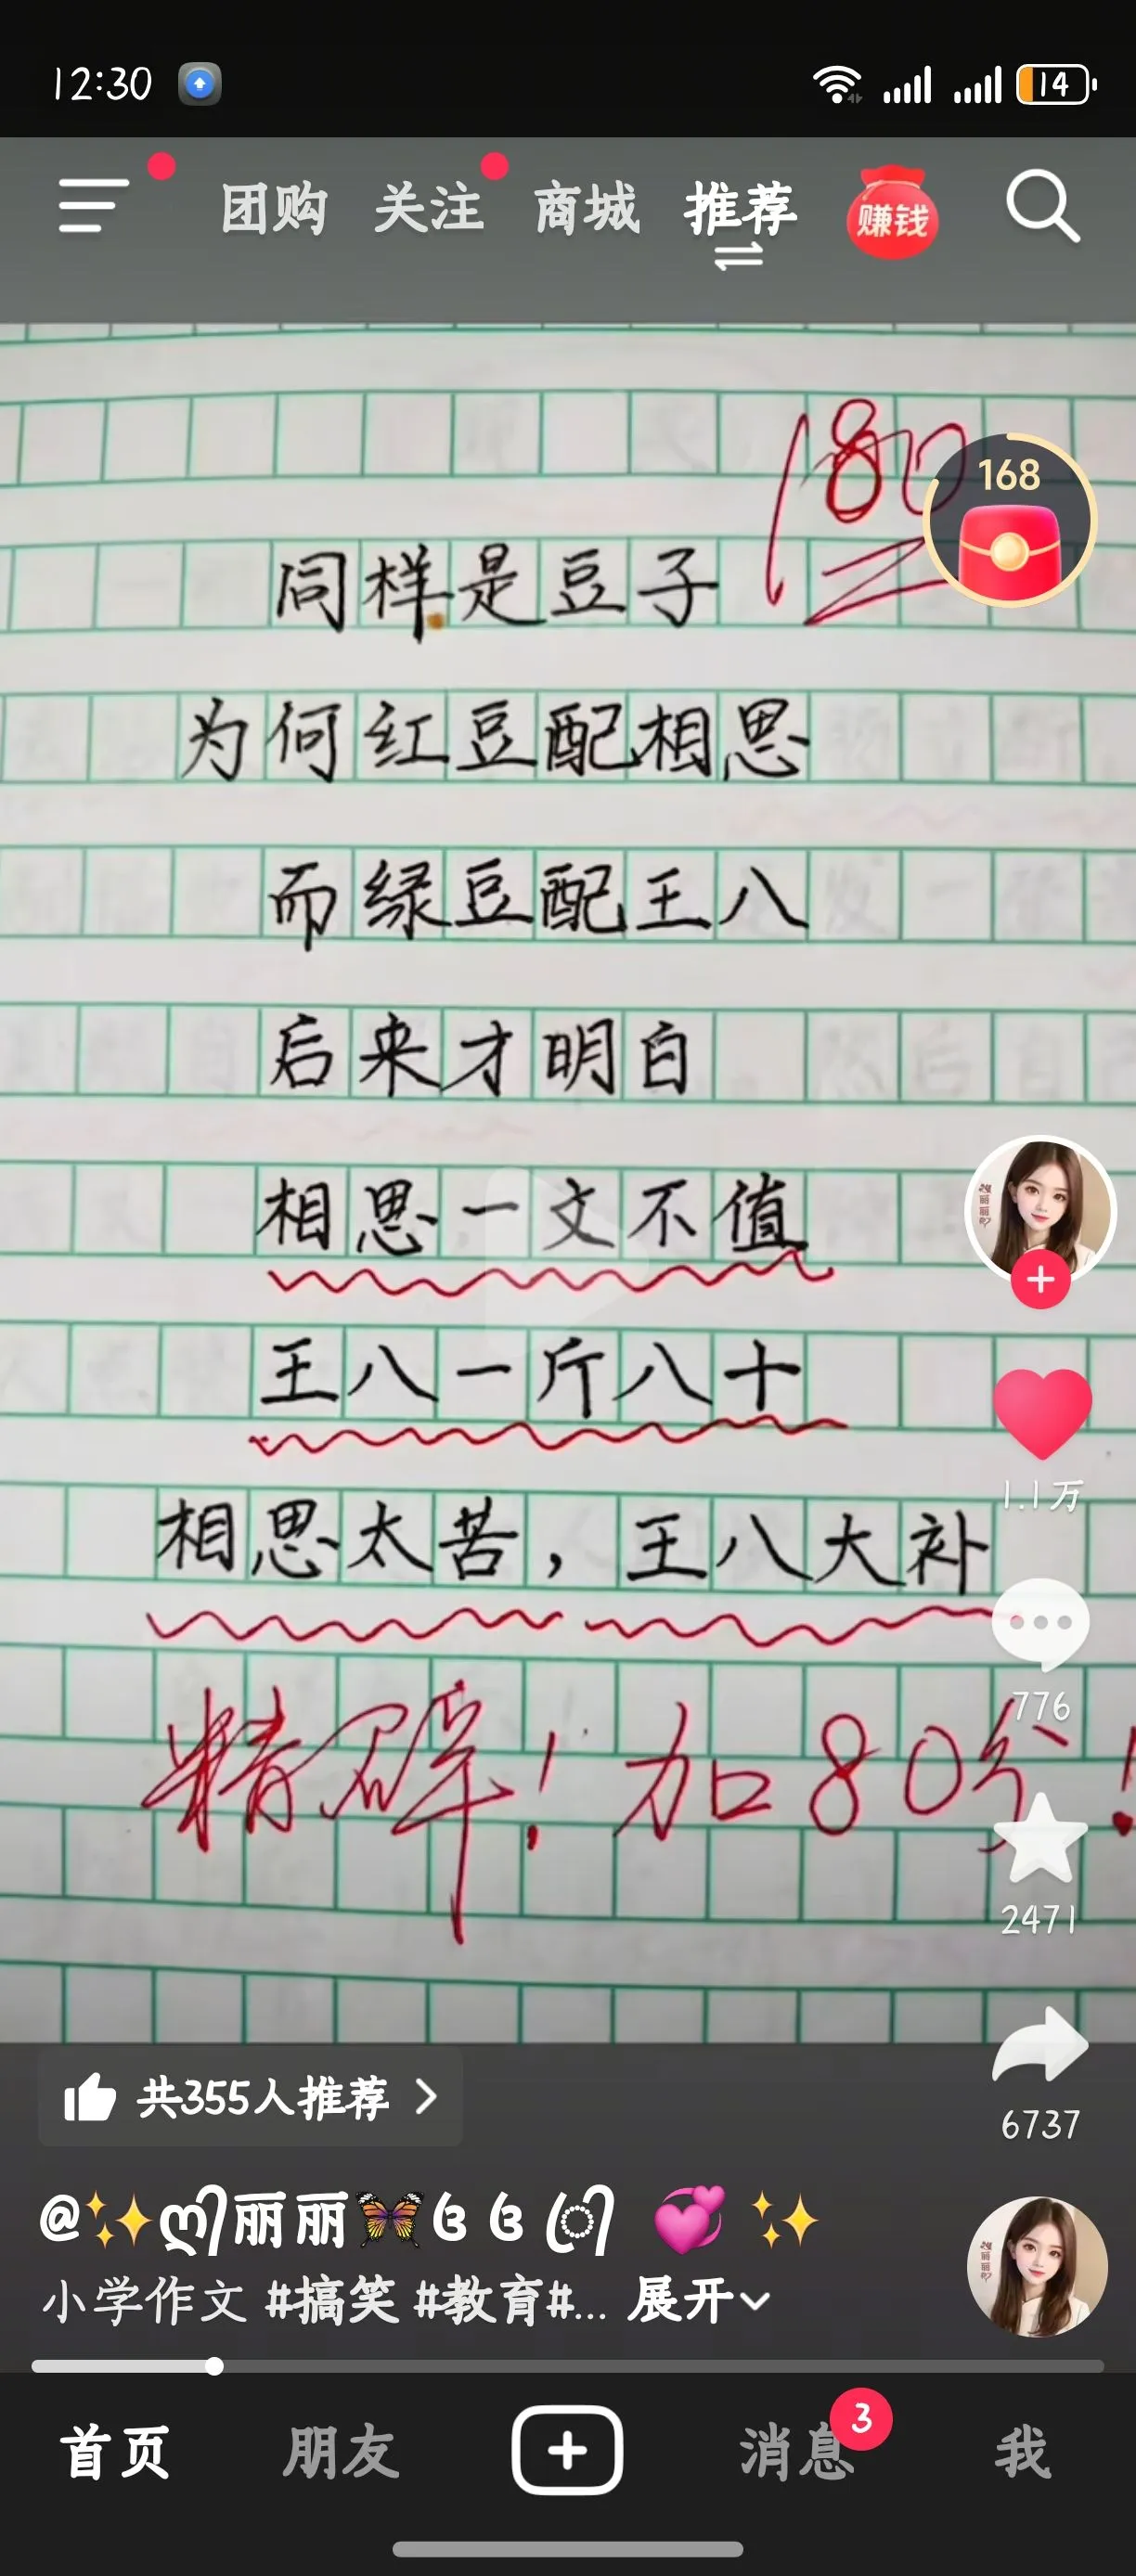 12:30
14
团购 关注 商城 推荐 赚钱
180
168
同样是豆子
为何红豆配相思
而绿豆配王八
后来才明白
相思一文不值
王八一斤八十
相思太苦，王八大补
精辟！加80分！
1.1万
776
2471
6737
共355人推荐
@✨ღ᭄丽丽🦋
小学作文 #搞笑 #教育#... 展开
首页 朋友 消息 3 我